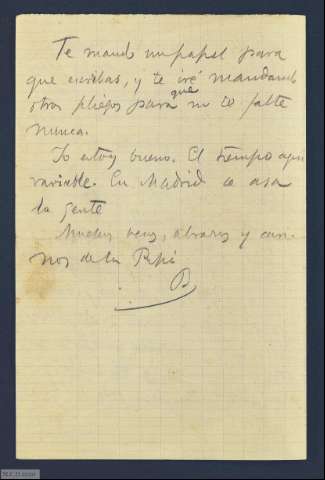 Te mando un papel para
que escribas, y te iré mandando
otros pliegos para que no te falte
nunca.
Yo estoy bueno. El tiempo aquí
variable. En Madrid se asa
la gente
Muchos besos, abrazos y cari-
ños de tu Pepe
B